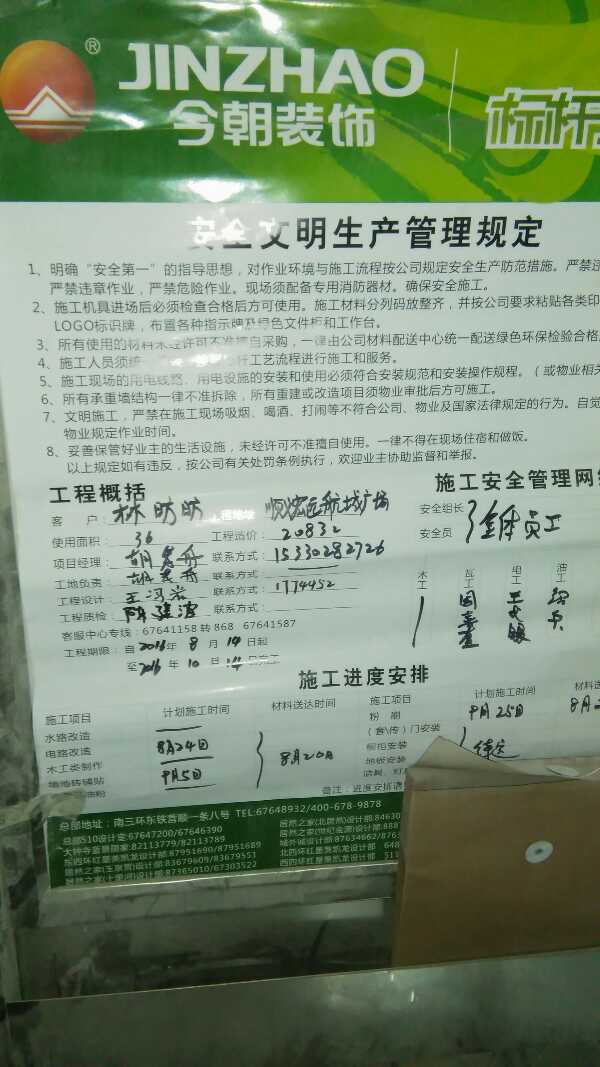 ®
JINZHAO
今朝装饰
标杆
安全文明生产管理规定
1、明确“安全第一”的指导思想，对作业环境与施工流程按公司规定安全生产防范措施。严禁违
严禁违章作业，严禁危险作业。现场须配备专用消防器材。确保安全施工。
2、施工机具进场后必须检查合格后方可使用。施工材料分列码放整齐，并按公司要求粘贴各类印
LOGO标识牌，布置各种指示牌及绿色文件柜和工作台。
3、所有使用的材料未经许可不准擅自采购，一律由公司材料配送中心统一配送绿色环保检验合格
4、施工人员须统一 工艺流程进行施工和服务。
5、施工现场的用电线路、用电设施的安装和使用必须符合安装规范和安装操作规程。（或物业相关
6、所有承重墙结构一律不准拆除，所有重建或改造项目须物业审批后方可施工。
7、文明施工，严禁在施工现场吸烟、喝酒、打闹等不符合公司、物业及国家法律规定的行为。自觉
物业规定作业时间。
8、妥善保管好业主的生活设施，未经许可不准擅自使用。一律不得在现场住宿和做饭。
以上规定如有违反，按公司有关处罚条例执行，欢迎业主协助监督和举报。
工程概括
施工安全管理网
客 户：林昉昉 工程地址 远航城广场
安全组长
安全员
全体员工
使用面积：36 工程造价：20832
项目经理：胡 联系方式：15330282726
工地负责：胡 联系方式：
工程设计：王冯岩 联系方式：1774452
工程质检： 联系方式：
木工 瓦工 电工 油工
客服中心专线：67641158 转 868 67641587
工程期限：自2016年8月14日起
至2016年10月14日完工
施工进度安排
施工项目 计划施工时间 材料送达时间 施工项目 计划施工时间 材料送
水路改造
电路改造 8月24日
木工类制作
墙地砖铺贴 9月5日
8月20日
粉刷 9月25日 8月2
（套\传）门安装
橱柜安装
地板安装
备注：进度安排请
总部地址：南三环东铁营顺一条八号 TEL:67648932/400-678-9878
总部510设计定:67647200/67646390
大钟寺蓝景国家:82113779/82113789
东四环红星美凯龙设计部:87951690/87951689
居然之家(玉泉营)设计部:83679609/83679551
居然之家(十里河)设计部:87365010/67303522
居然之家(北居然)设计部:84630
居然之家(世纪金源)设计部:88
城外诚设计部:87634662/876
北四环红星美凯龙设计部 648
西四环红星美凯龙设计部 511